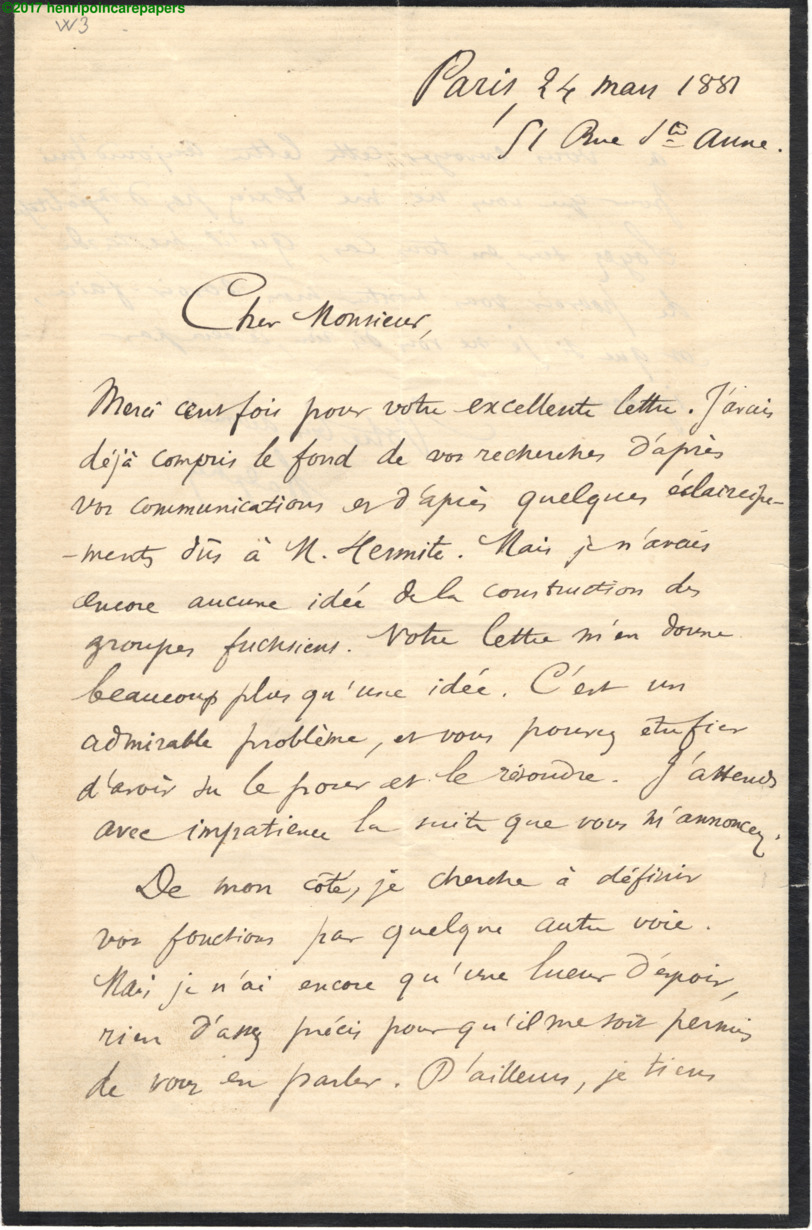 ©2017 henripoincarepapers
W3
Paris, 24 mars 1881
51 Rue Ste Anne.
Cher Monsieur,
Merci cent fois pour votre excellente lettre. J'avais
déjà compris le fond de vos recherches d'après
vos communications et d'après quelques éclaircisse-
-ments dûs à M. Hermite. Mais je n'avais
encore aucune idée de la construction des
groupes fuchsiens. Votre lettre m'en donne
beaucoup plus qu'une idée. C'est un
admirable problème, et vous pouvez être fier
d'avoir su le poser et le résoudre. J'attends
avec impatience la suite que vous m'annoncez.
De mon côté, je cherche à définir
vos fonctions par quelque autre voie.
Mais je n'ai encore qu'une lueur d'espoir,
rien d'assez précis pour qu'il me soit permis
de vous en parler. D'ailleurs, je tiens